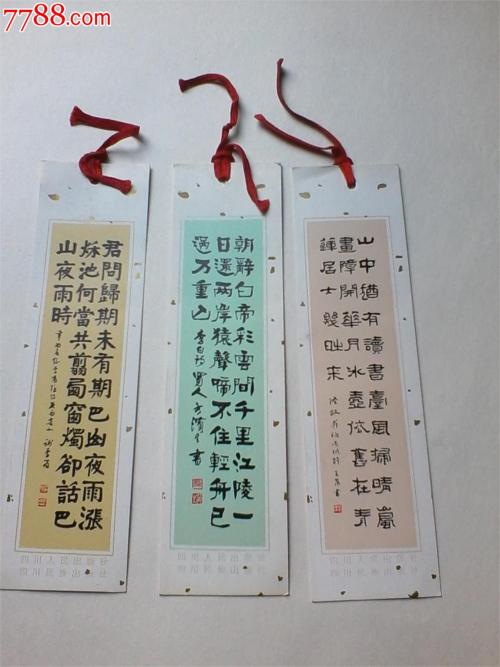 7788.com
君問歸期未有期巴山夜雨漲
秌池何當共翦西窗燭卻話巴
山夜雨時
四川人民出版社
四川民族出版社
朝辭白帝彩雲間千里江陵一
日還兩岸猿聲啼不住輕舟已
過万重山
李白詩 蜀人
書
四川人民出版社
四川民族出版社
山中猶有讀書臺風掃晴嵐
畫障開華月冰壺依舊在青
蓮居士幾時来
四川人民出版社
四川民族出版社